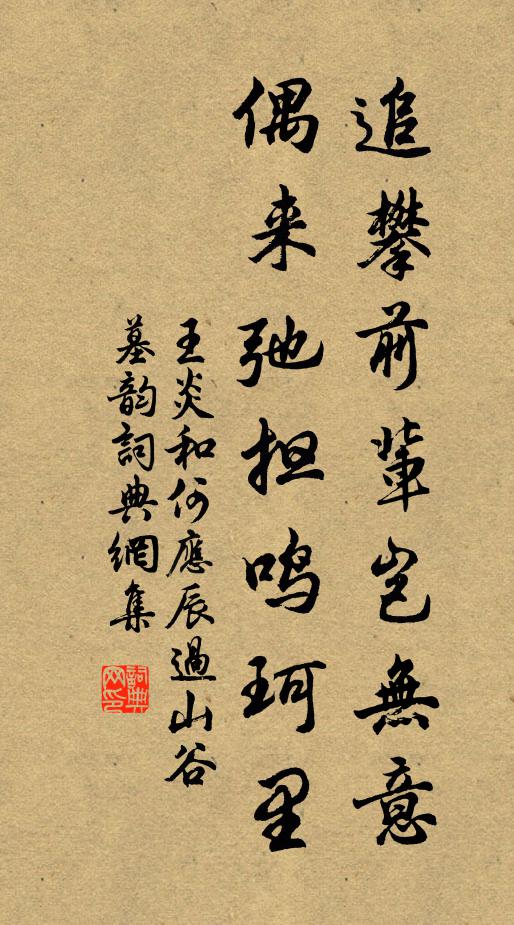 追攀前輩岂無意
偶来弛担鸣珂里
王炎和何應辰過山谷
墓韵詞典網集
詞典网印